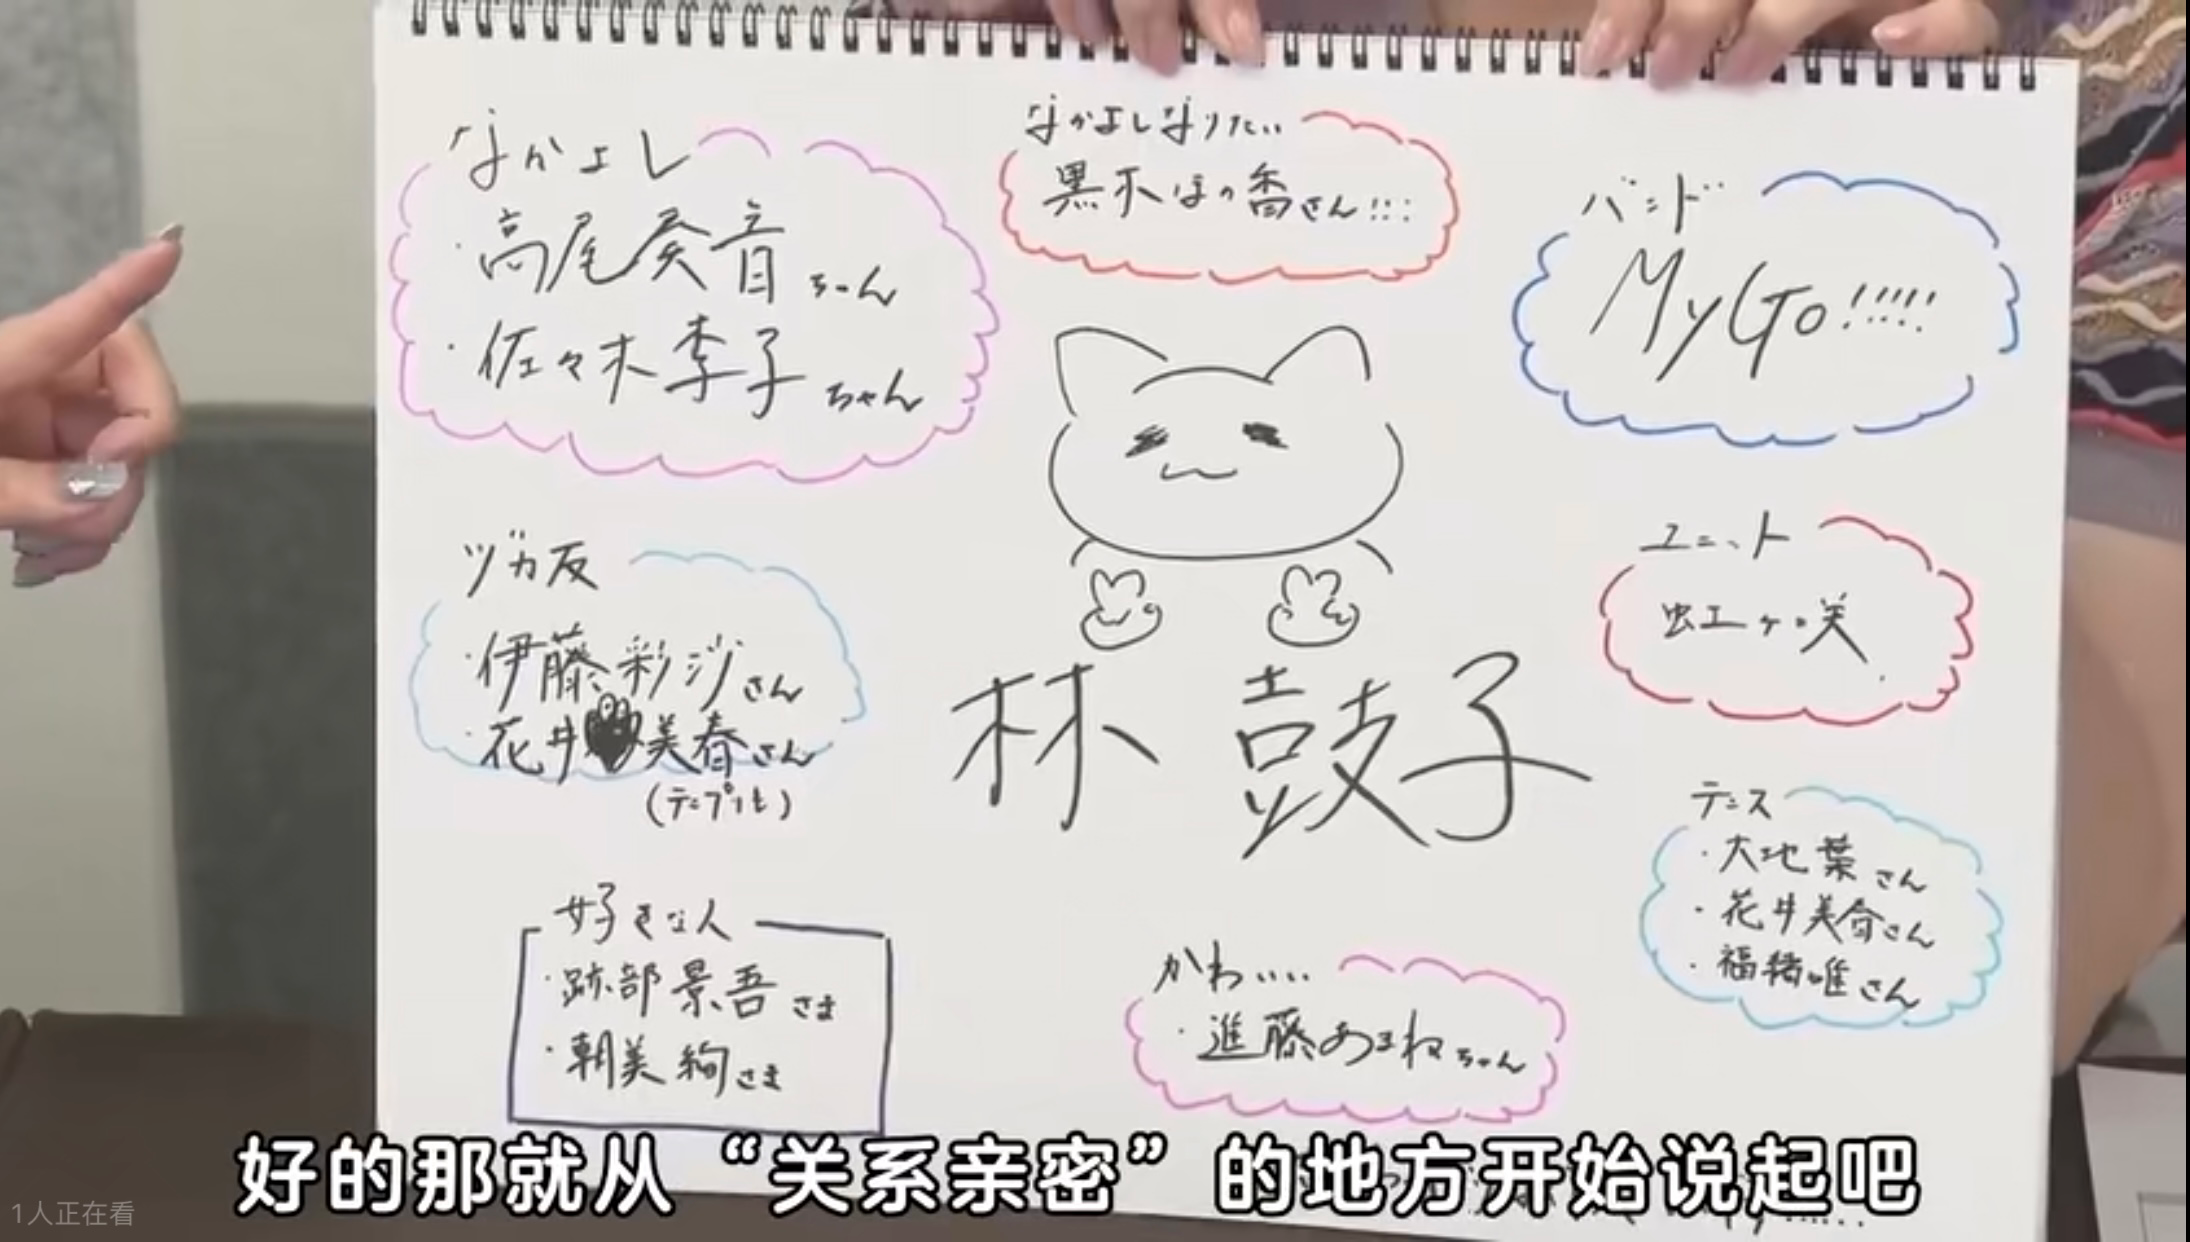 なかよし
・高尾奏音ちゃん
・佐々木李子ちゃん
なかよしなりたい
黒木ほの香さん!!!
バンド
MyGO!!!!!
ヅカ友
・伊藤彩沙さん
・花井美春さん
(テニプリも)
林 鼓子
ユニット
虹ヶ咲
テニス
・大地葉さん
・花井美春さん
・福緒唯さん
好きな人
・跡部景吾さま
・朝美絢さま
かわいい
・進藤あまねちゃん
好的那就从“关系亲密”的地方开始说起吧
1人正在看